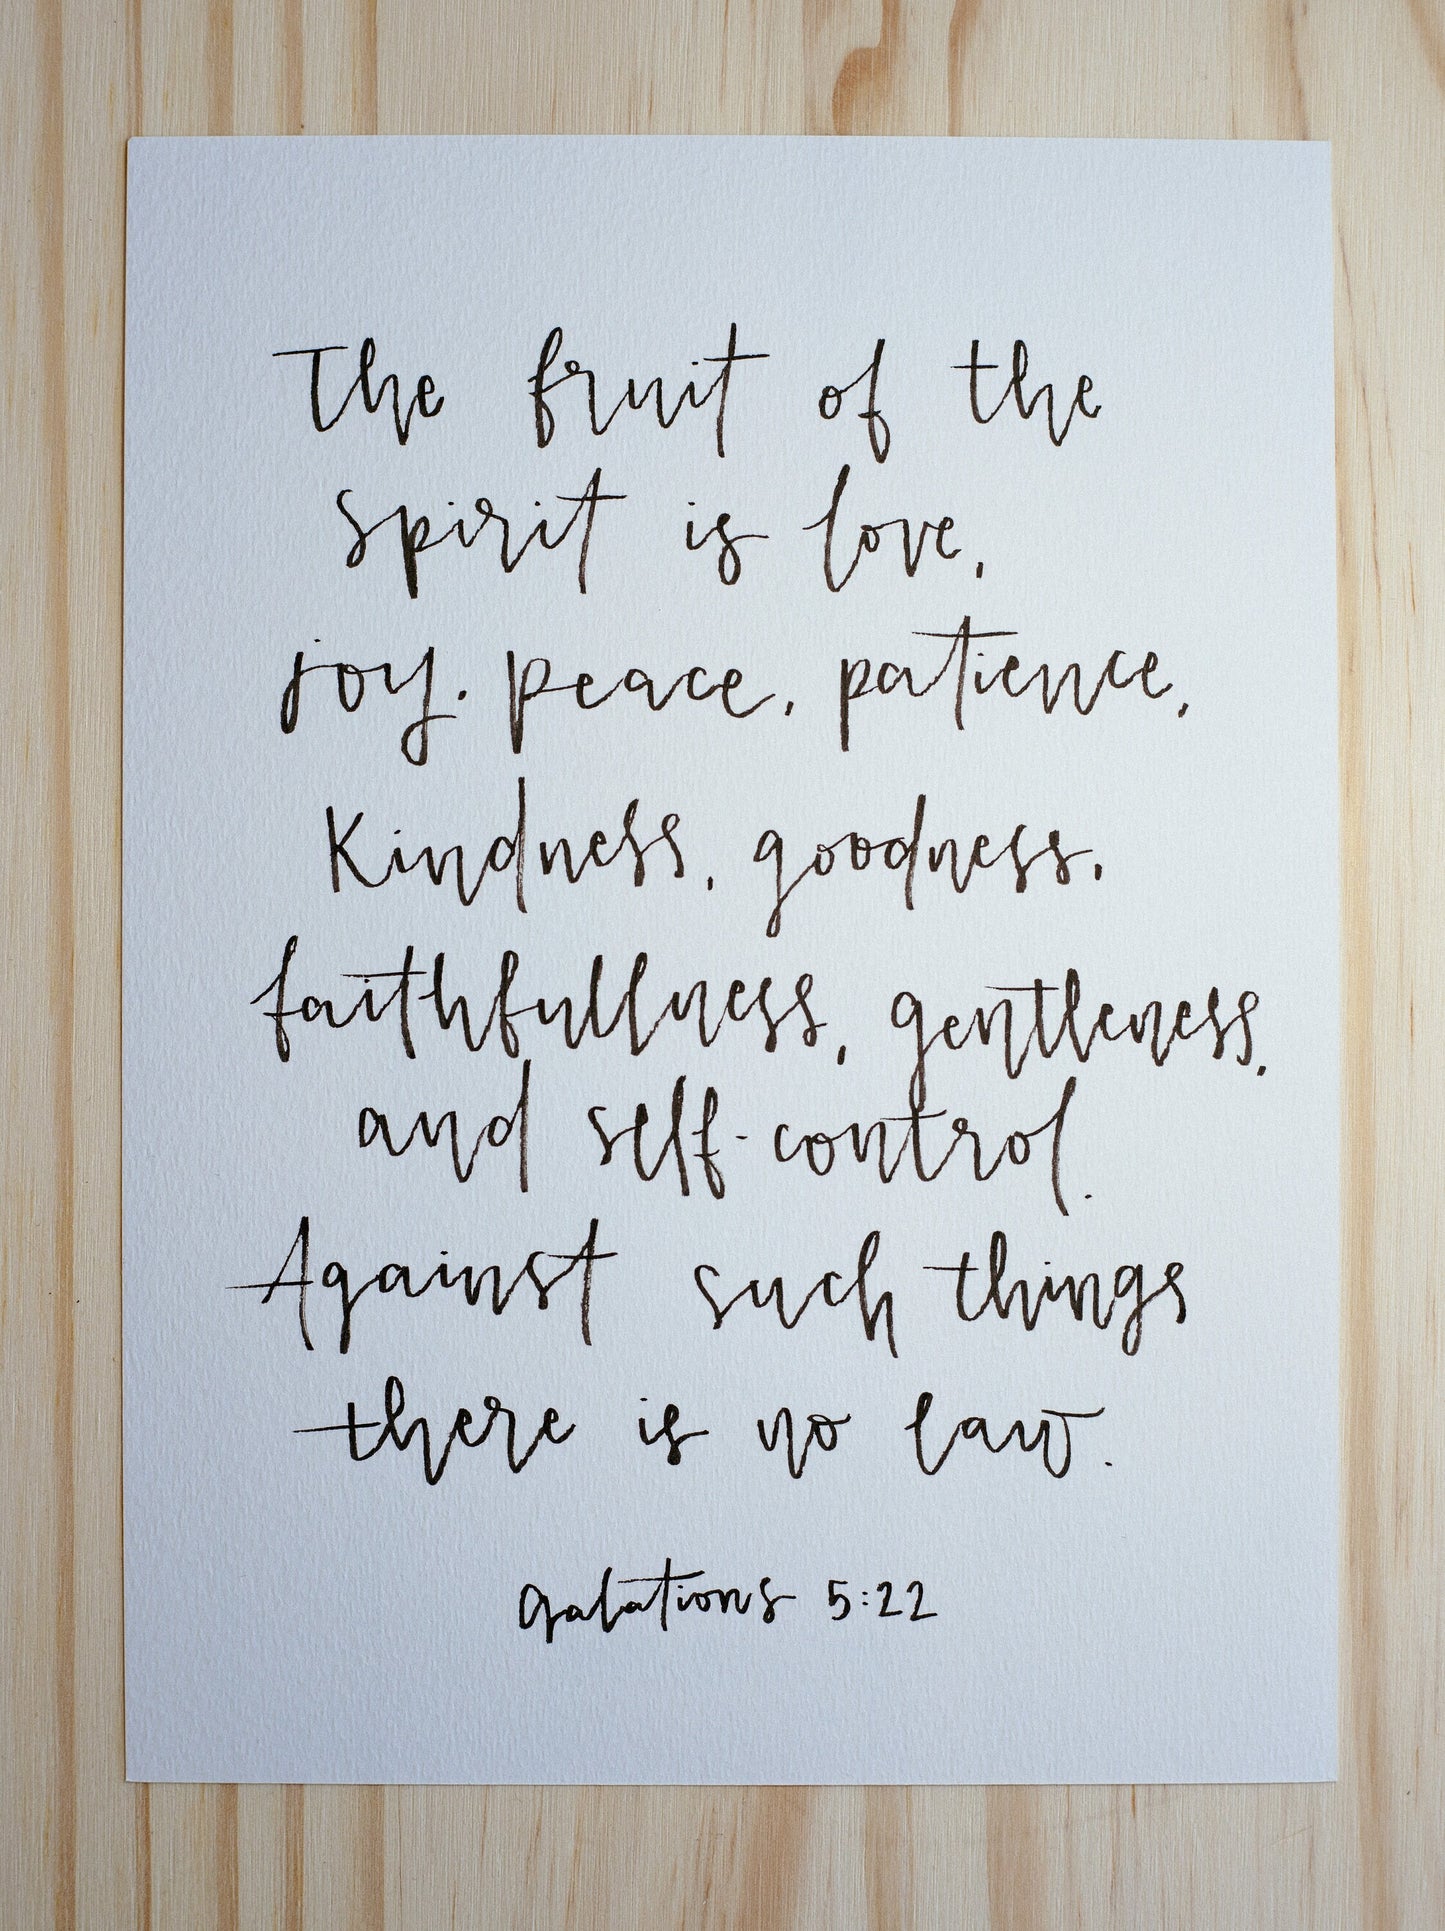 The fruit of the
spirit is love,
joy, peace, patience,
Kindness, goodness,
faithfullness, gentleness,
and self-control.
Against such things
there is no law.
galations 5:22